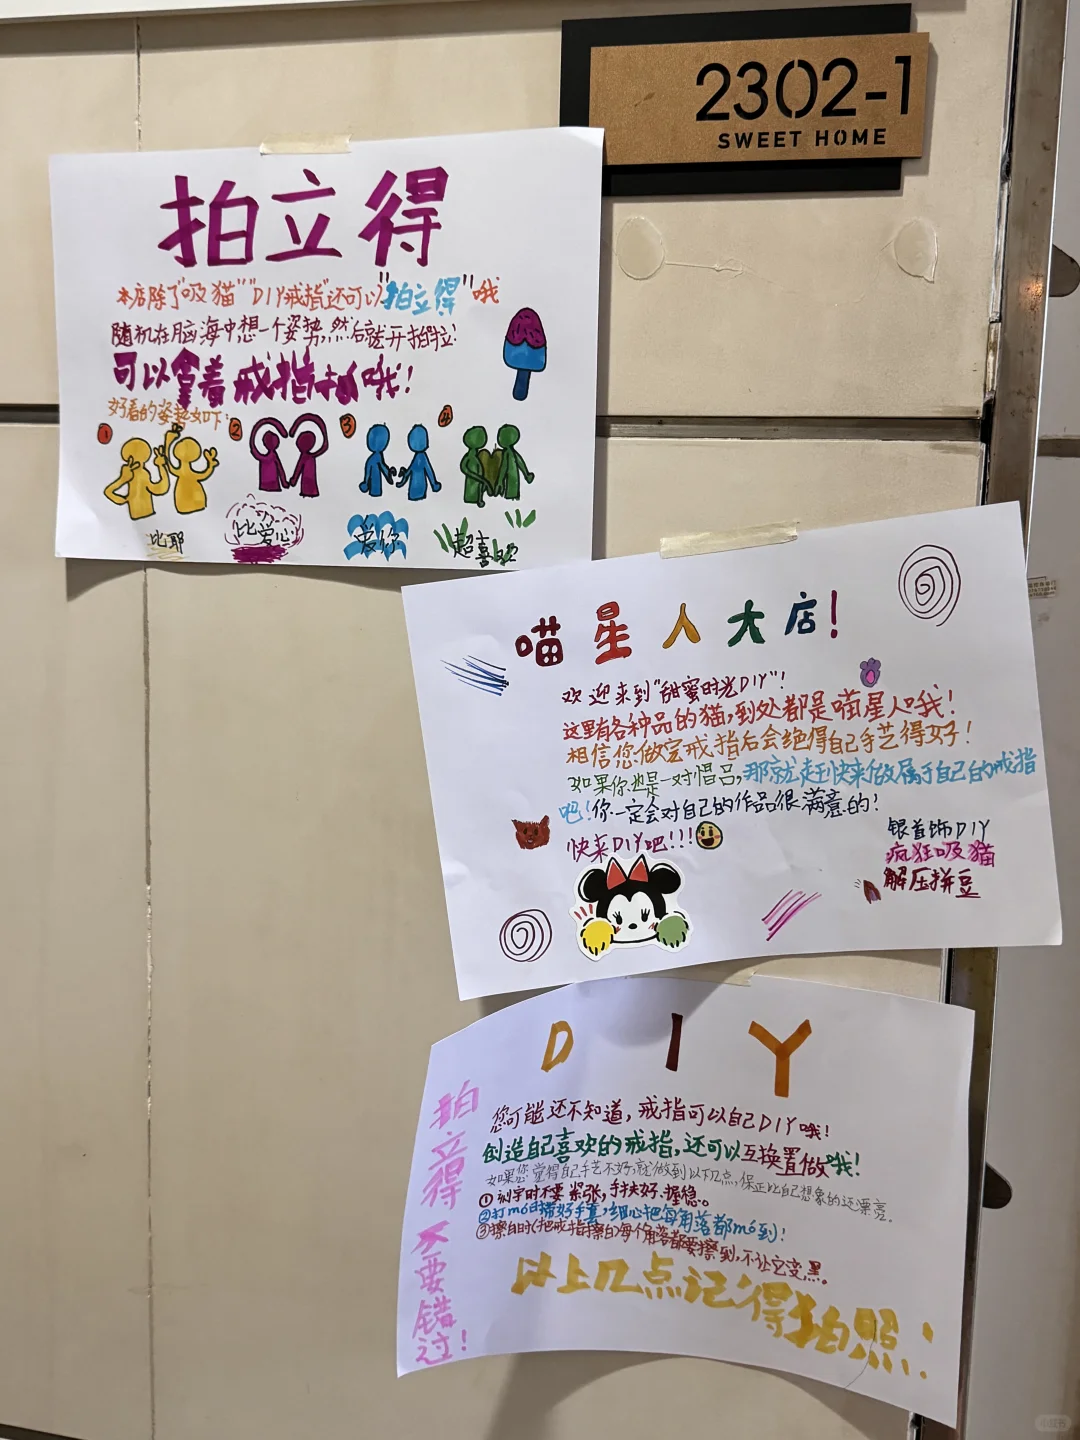 2302-1
SWEET HOME
拍立得
本店除了"吸猫""DIY戒指"还可以"拍立得"哦
随机在脑海中想一个姿势,然后就开拍啦!
可以拿着戒指拍哦!
好看的姿势如下:
① ② ③ ④
比耶 比爱心 爱你 超喜欢
喵星人大店!
欢迎来到"甜蜜时光DIY"!
这里有各种品的猫,到处都是喵星人哦!
相信您做完戒指后会绝得自己手艺得好!
如果你也是一对情侣,那就赶快来做属于自己的戒指
吧!你一定会对自己的作品很满意的!
快来DIY吧!!!
银首饰DIY
疯狂吸猫
解压拼豆
DIY
您可能还不知道,戒指可以自己DIY哦!
创造自己喜欢的戒指,还可以互换置做哦!
如果您觉得自己手艺不好,就做到以下几点,保正比自己想象的还漂亮。
①刻字时不要紧张,手扶好、握稳。
②打mó时带好手套,细心把每个角落都mó到!
③擦白时(把戒指擦白)每个角落都要擦到,不让它变黑。
以上几点记得拍照!
拍立得不要错过!